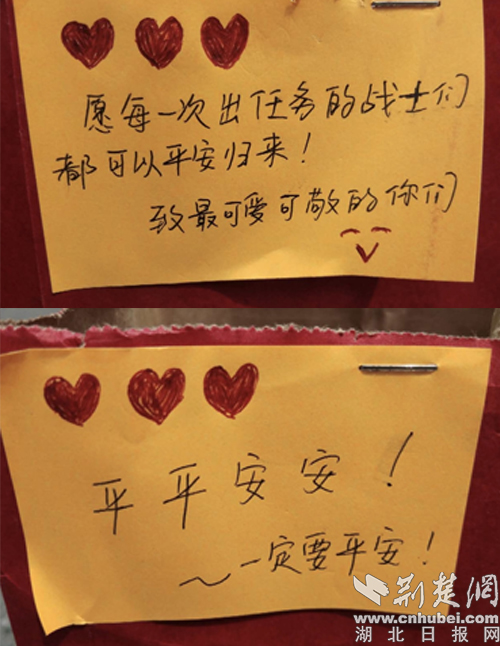 愿每一次出任务的战士们
都可以平安归来！
致最可爱可敬的你们
平平安安！
～一定要平安！
荆楚网
www.cnhubei.com
湖北日报网